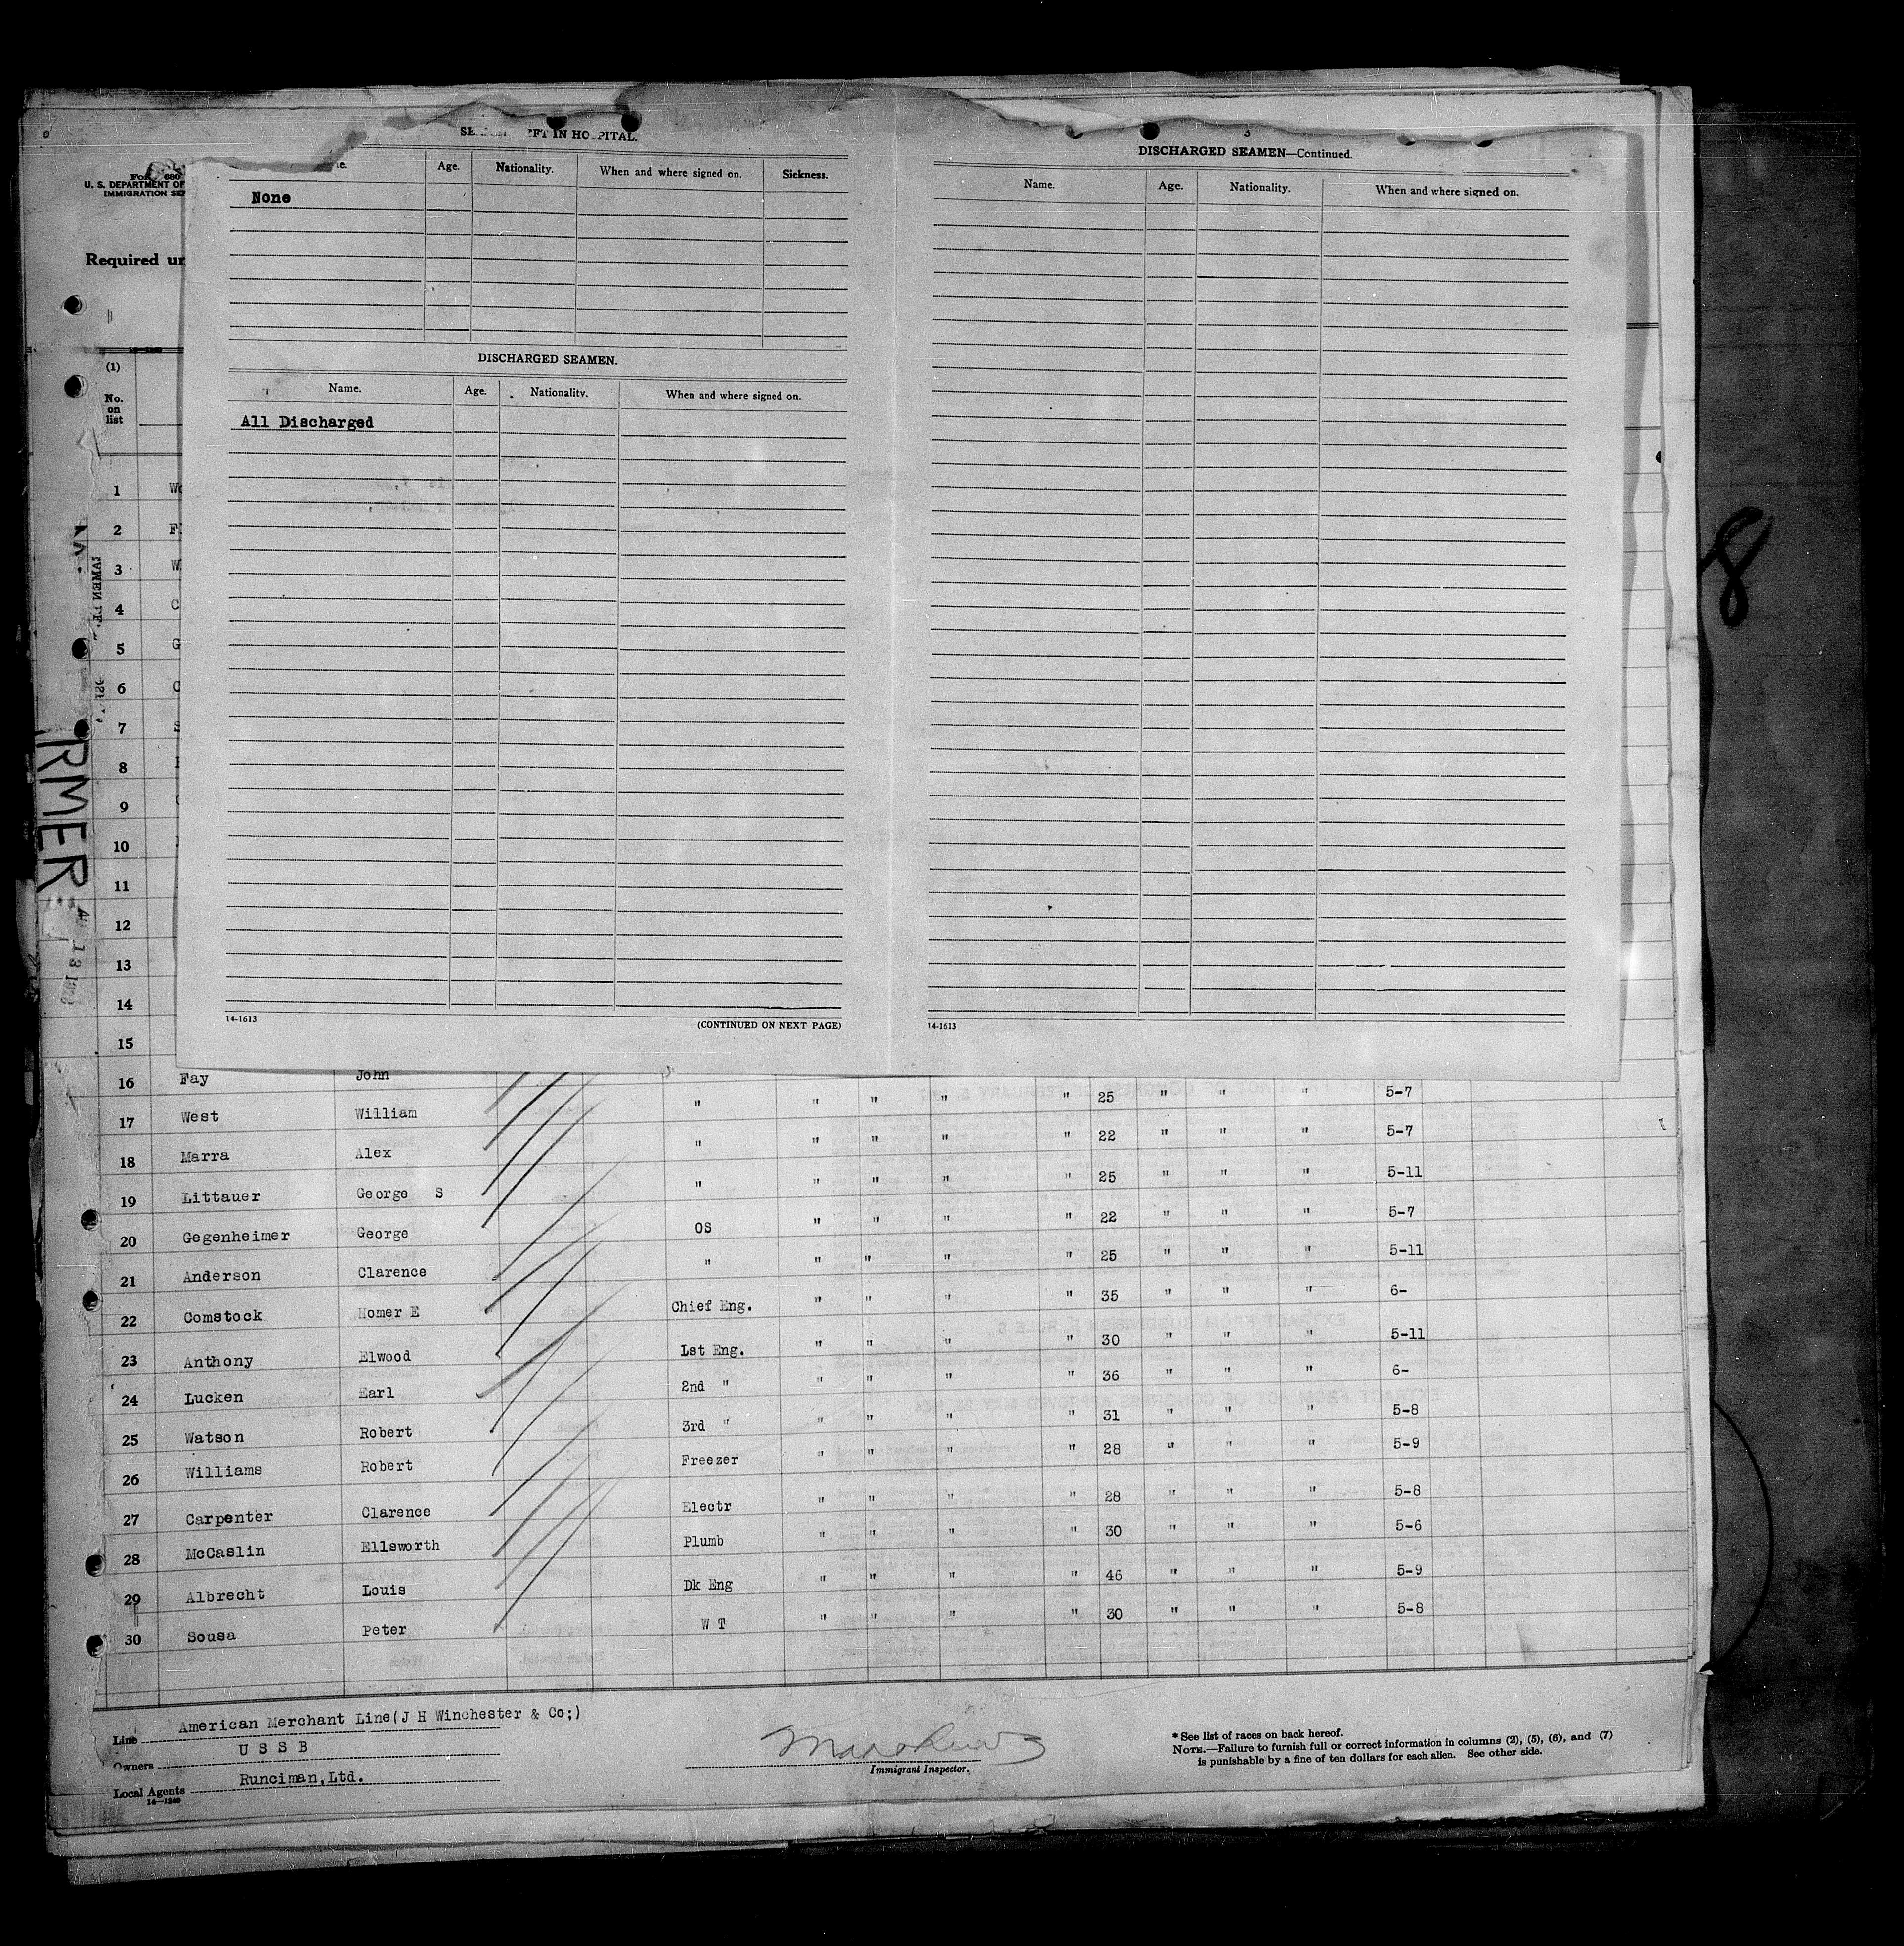 HOSPITAL.
Age. Nationality. When and where signed on. Sickness.
None
DISCHARGED SEAMEN.
Name. Age. Nationality. When and where signed on.
All Discharged
14-1613 (CONTINUED ON NEXT PAGE)
3
DISCHARGED SEAMEN—Continued.
Name. Age. Nationality. When and where signed on.
14-1613
U. S. DEPARTMENT OF
IMMIGRATION SER
Required un
(1)
No.
on
list
1
2
3
4
5
6
7
8
9
10
11
12
13
14
15
16 Fay John
17 West William " " " " " 25 " " " 5-7
18 Marra Alex " " " " " 22 " " " 5-7
19 Littauer George S " " " " " 25 " " " 5-11
20 Gegenheimer George OS " " " " 22 " " " 5-7
21 Anderson Clarence " " " " " 25 " " " 5-11
22 Comstock Homer E Chief Eng. " " " " 35 " " " 6-
23 Anthony Elwood 1st Eng. " " " " 30 " " " 5-11
24 Lucken Earl 2nd " " " " " 36 " " " 6-
25 Watson Robert 3rd " " " " " 31 " " " 5-8
26 Williams Robert Freezer " " " " 28 " " " 5-9
27 Carpenter Clarence Electr " " " " 28 " " " 5-8
28 McCaslin Ellsworth Plumb " " " " 30 " " " 5-6
29 Albrecht Louis Dk Eng " " " " 46 " " " 5-9
30 Sousa Peter W T " " " " 30 " " " 5-8
Line American Merchant Line(J H Winchester & Co;)
Owners U S S B
Local Agents Runciman,Ltd.
14-1240
Immigrant Inspector.
* See list of races on back hereof.
NOTE.—Failure to furnish full or correct information in columns (2), (5), (6), and (7)
is punishable by a fine of ten dollars for each alien. See other side.
RMER
8